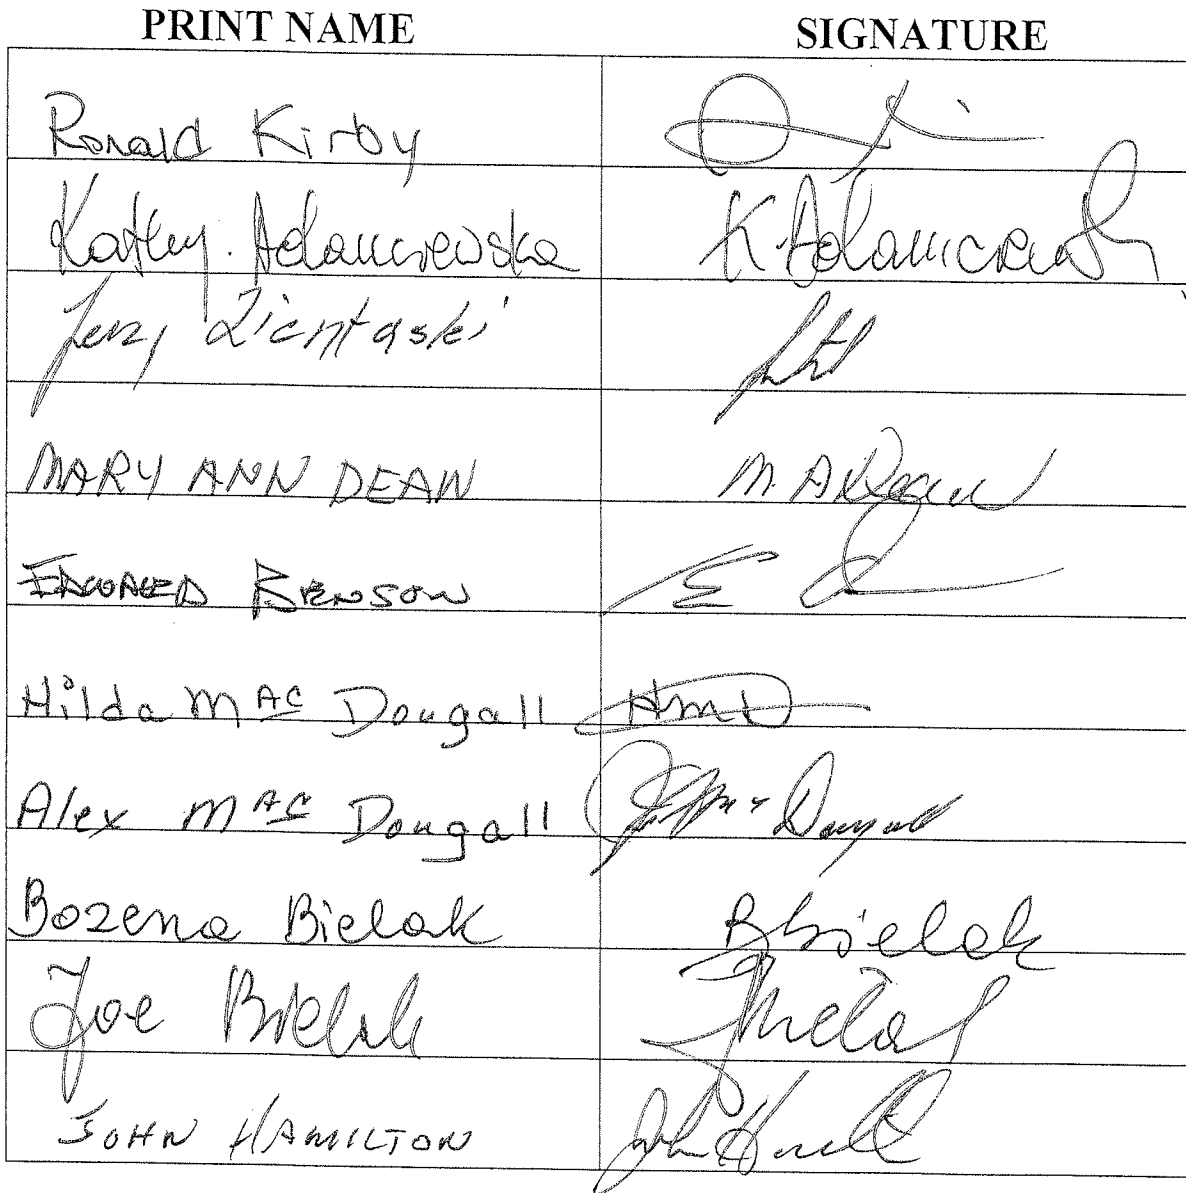 PRINT NAME SIGNATURE
Ronald Kirby
Kathy. Adamczewska K. Adamczewska
Jerzy Zientarski
MARY ANN DEAN M. A Dean
EDWARD BENSON
Hilda Mac Dougall HMD
Alex Mac Dougall Mac Dougall
Bozena Bielak B Bielak
Joe Bielak JBielak
JOHN HAMILTON John